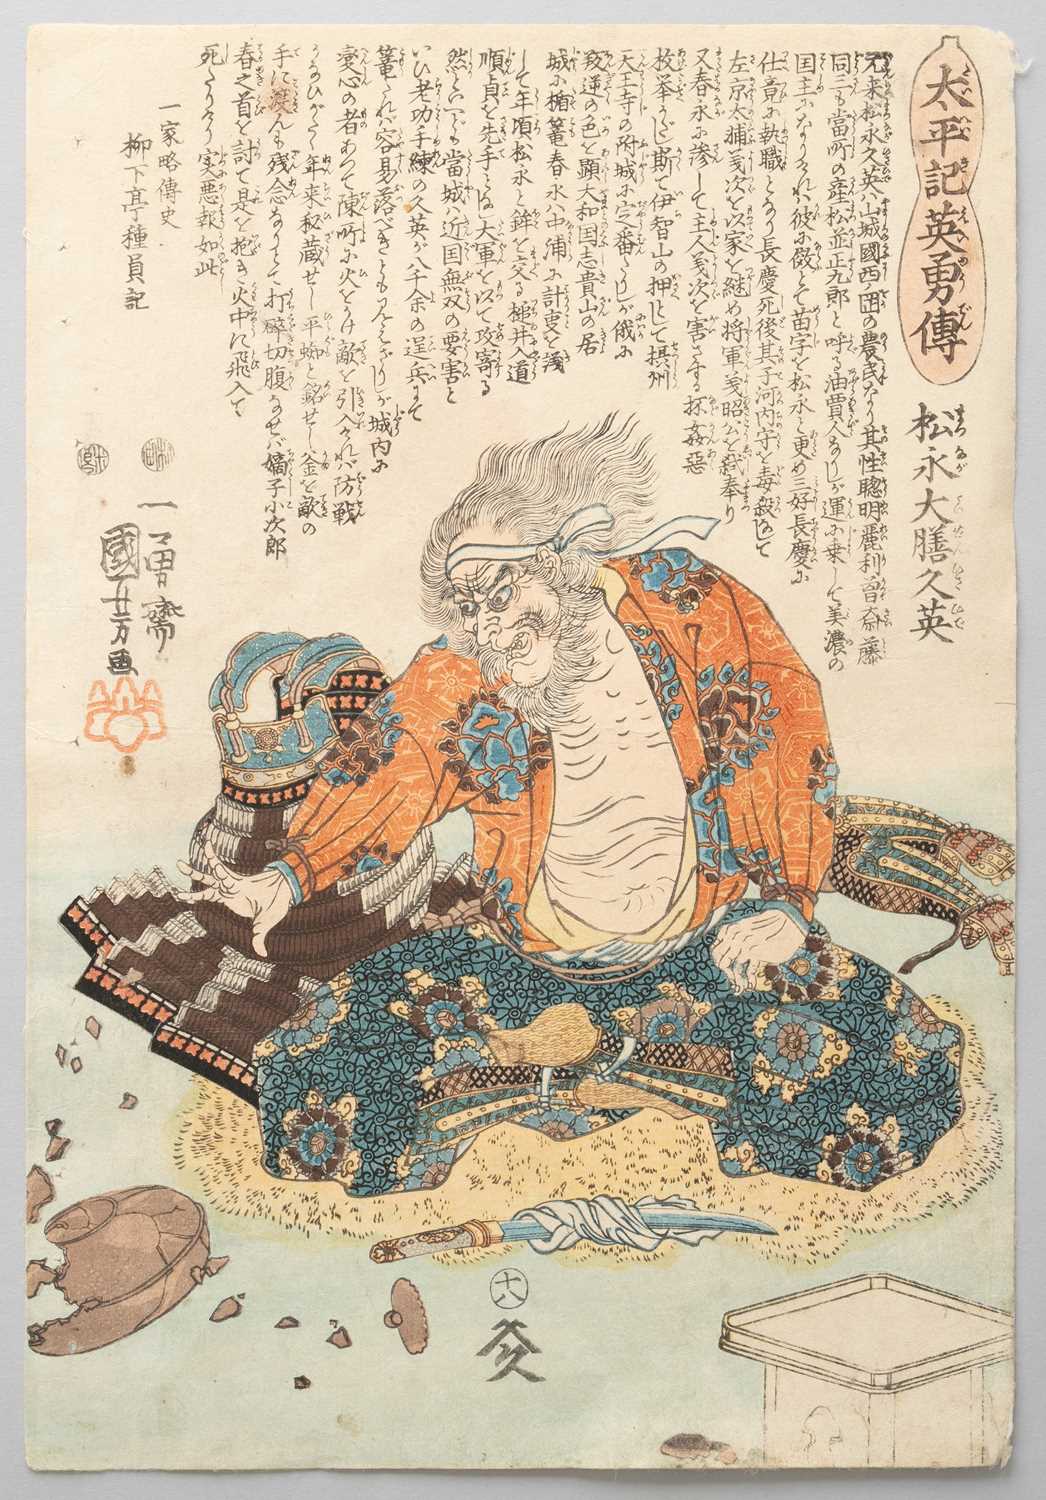 太平記英勇傳
松永大膳久英
元来松永久英ハ山城國西の岡の農民なり其性聰明麗利曽斎藤
同三も當町の産松並正九郎と呼る油賈人なりしが運に乗して美濃の
国主になりけれハ彼に倣とて苗字を松永と更め三好長慶に
仕竟に執職となり長慶死後其子河内守を毒殺なして
左京太捕義次を以家を継め将軍義昭公を弑奉り
又春永に滲して主人義次を害さする抔姦惡
枚挙がたし斯て伊智山の押として摂州
天王寺の附城に定番たりしが俄に
叛逆の色を顕大和国志貴山の居
城に楯篭春永ハ中浦に計叓を浅
して年頃松永と鉾を交る槌井入道
順貞を先手とし大軍を以て攻寄る
然といへども當城ハ近国無双の要害と
いひ老功手練の久英が八千余の逞兵にて
篭たれバ容易落べきとも見えざりしが城内に
変心の者あつて陳所に火をかけ敵を引入けれバ防戦
かなひがたく年来秘蔵せし平蜘と銘せし釜を敵の
手に渡んも残念なりとて打砕切腹なせバ嫡子小次郎
春之首を討て是を抱き火中に飛入て
死たりけり実悪報如此
一家略傳史
柳下亭種員記
一勇齋
國芳画
十八
久